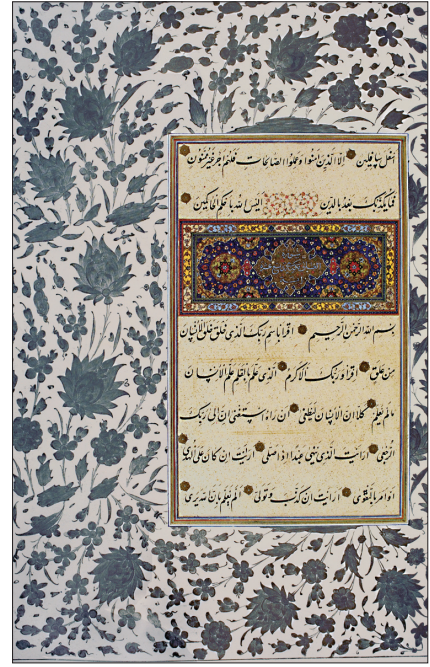 اسفل سافلين الا الذين امنوا وعملوا الصالحات فلهم اجر غير ممنون
فما يكذبك بعد بالدين اليس الله باحكم الحاكمين
بسم الله الرحمن الرحيم اقرا باسم ربك الذى خلق خلق الانسان
من علق اقرا وربك الاكرم الذى علم بالقلم علم الانسان
مالم يعلم كلا ان الانسان ليطغى ان راه استغنى ان الى ربك
الرجعى ارايت الذى ينهى عبدا اذا صلى ارايت ان كان على الهدى
او امر بالتقوى ارايت ان كذب وتولى الم يعلم بان الله يرى